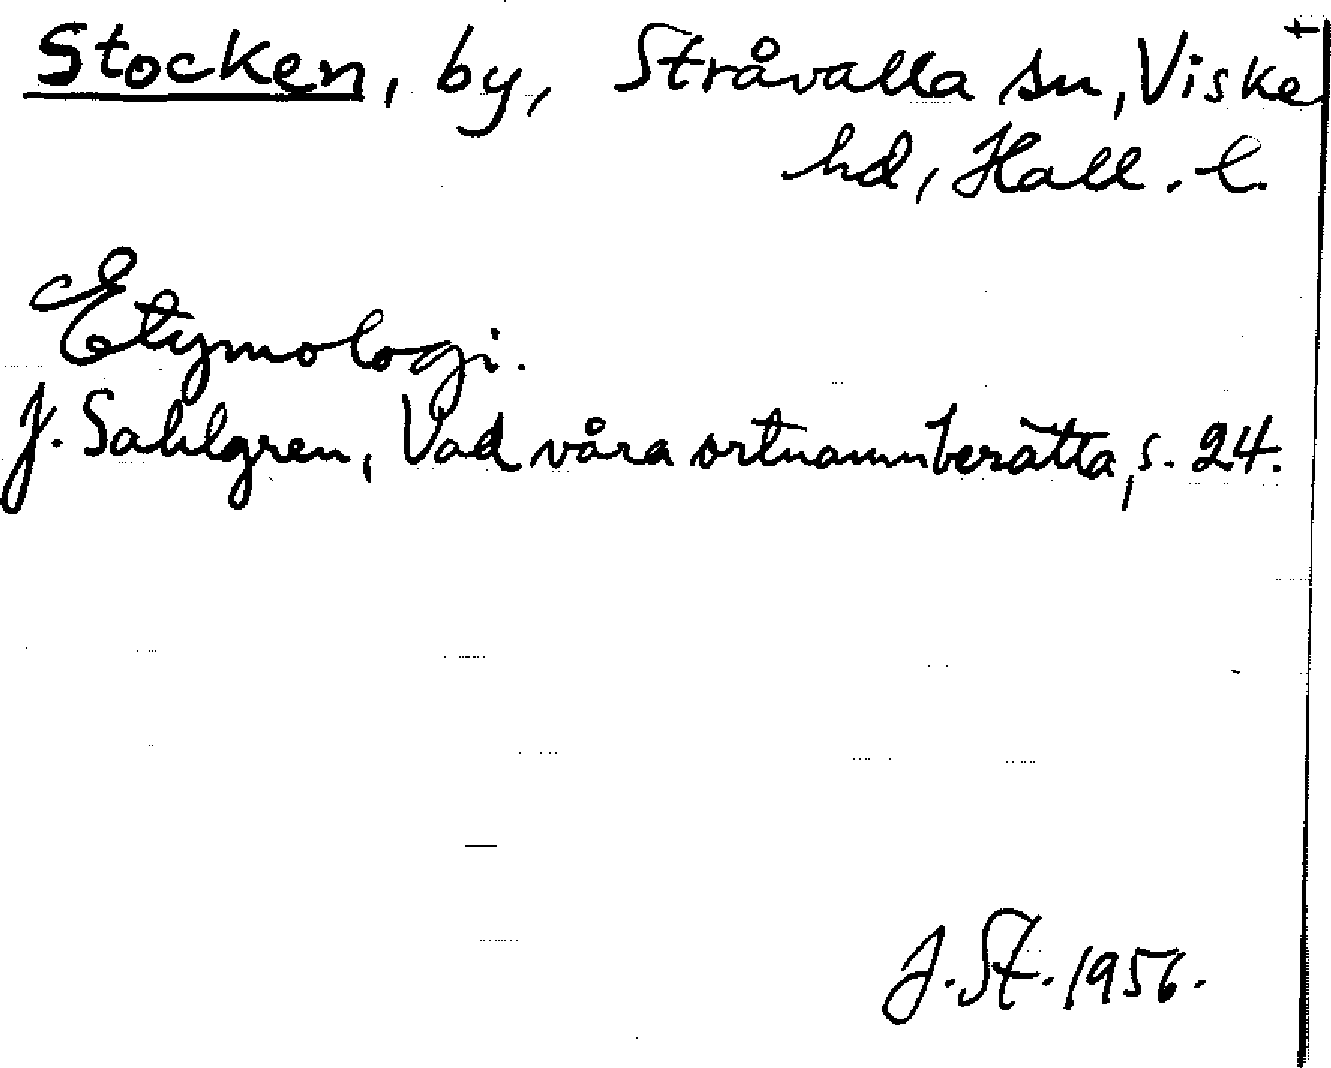 Stocken, by, Stråvalla sn, Viske
hd, Hall. l.
Etymologi.
J. Sahlgren, Vad våra ortnamn berätta, s. 24.
J. St. 1956.